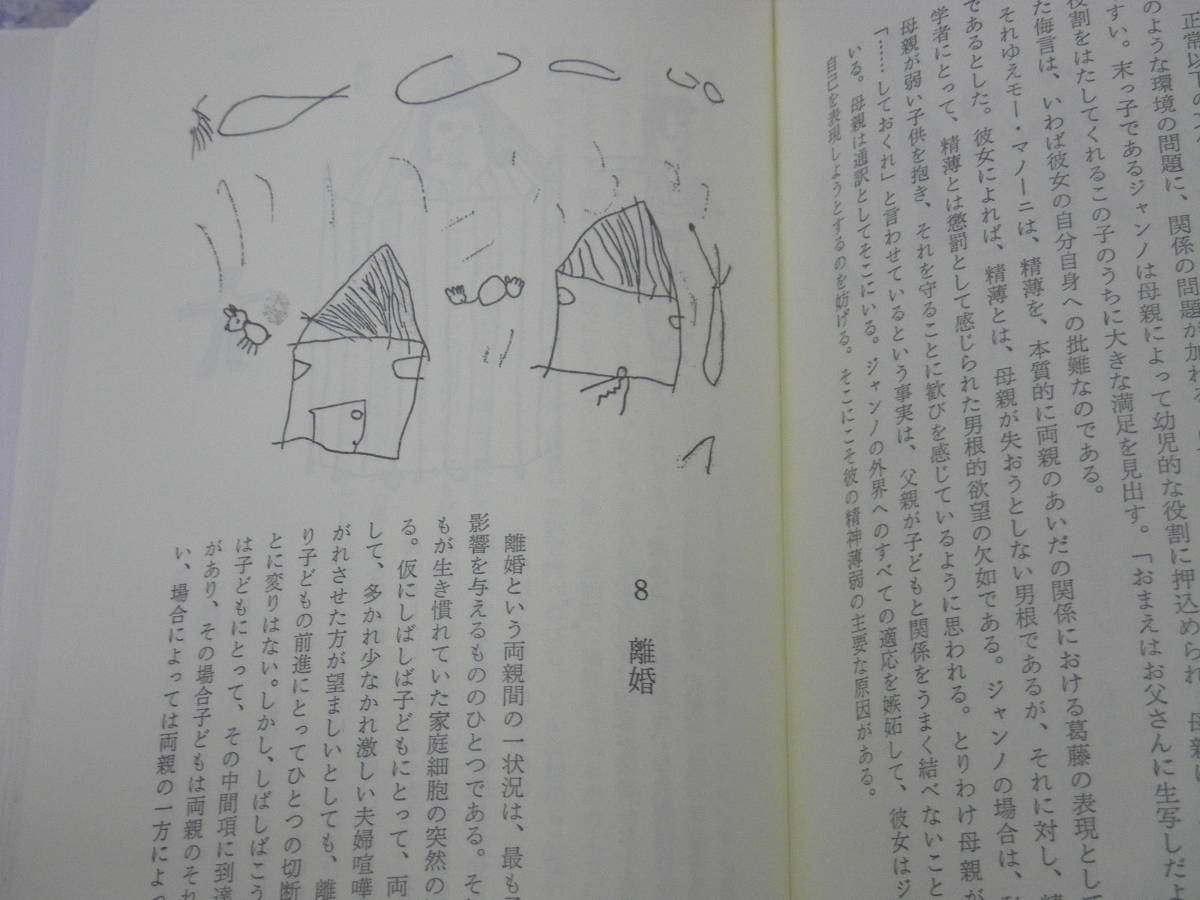 正常以下の
のような環境の問題に、関係の問題が加わる。
すい。末っ子であるジャンノは母親によって幼児的な役割に押込められ、母親に
役割をはたしてくれるこの子のうちに大きな満足を見出す。「おまえはお父さんに生写しだよ
た侮言は、いわば彼女の自分自身への批難なのである。
それゆえモー・マノーニは、精薄を、本質的に両親のあいだの関係における葛藤の表現として
であるとした。彼女によれば、精薄とは、母親が失おうとしない男根であるが、それに対し、精
学者にとって、精薄とは懲罰として感じられた男根的欲望の欠如である。ジャンノの場合は、
母親が弱い子供を抱き、それを守ることに歓びを感じているように思われる。とりわけ母親が
「……しておくれ」と言わせているという事実は、父親が子どもと関係をうまく結べないこと
いる。母親は通訳としてそこにいる。ジャンノの外界へのすべての適応を嫉妬して、彼女はジ
自己を表現しようとするのを妨げる。そこにこそ彼の精神薄弱の主要な原因がある。
8 離婚
離婚という両親間の一状況は、最も
影響を与えるもののひとつである。そ
もが生き慣れていた家庭細胞の突然の
る。仮にしばしば子どもにとって、両
して、多かれ少なかれ激しい夫婦喧嘩
がれさせた方が望ましいとしても、離
り子どもの前進にとってひとつの切断
とに変りはない。しかし、しばしばこう
は子どもにとって、その中間項に到達
があり、その場合子どもは両親のそれ
い、場合によっては両親の一方によっ